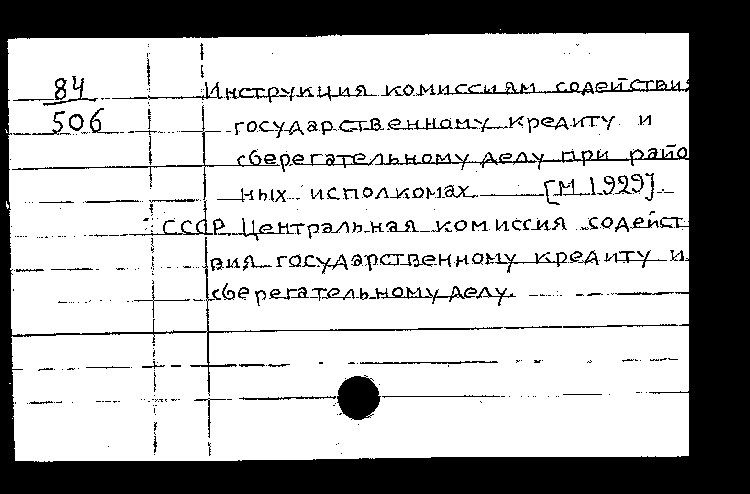 84
506
Инструкция комиссиям содействия
государственному кредиту и
сберегательному делу при райо
ных исполкомах [М 1929].
СССР Центральная комиссия содейст
вия государственному кредиту и
сберегательному делу.